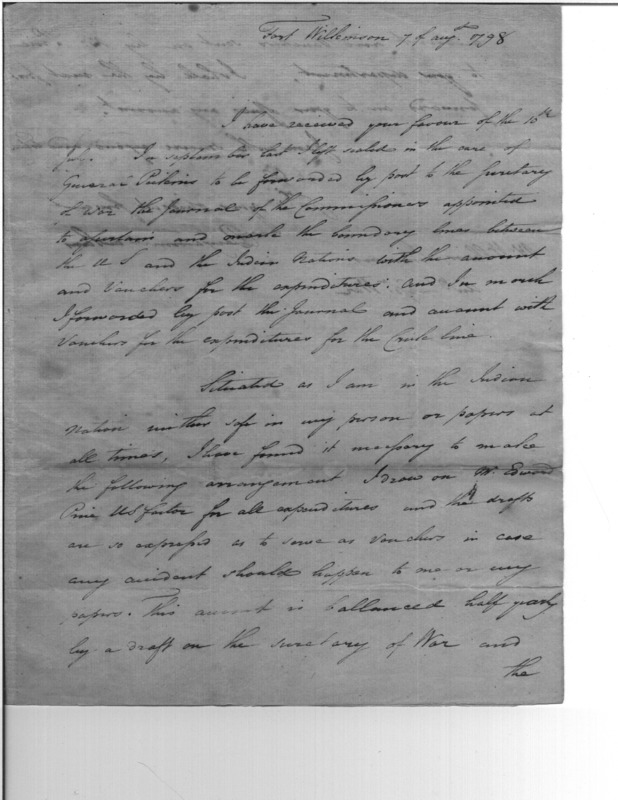 Fort Wilkinson 7 of augt. 1798
I have received your favour of the 16th
In september last I left sealed in the care of
General Pickins to be forwarded by post to the Secretary
of War the Journal of the Commissioners appointed
to ascertain and mark the boundary lines between
the U S and the Indian Nations with the account
and vouchers for the expenditures. and In march
I forwarded by post the Journal and account with
vouchers for the expenditures for the Creek line.
Situated as I am in the Indian
Nation neither safe in my person or papers at
all times, I have found it necessary to make
the following arrangement I draw on Mr. Edward
Price US factor for all expenditures and the drafts
are so expressed as to serve as vouchers in case
any accident should happen to me or my
papers. This account is ballanced half yearly
by a draft on the secretary of War and
the